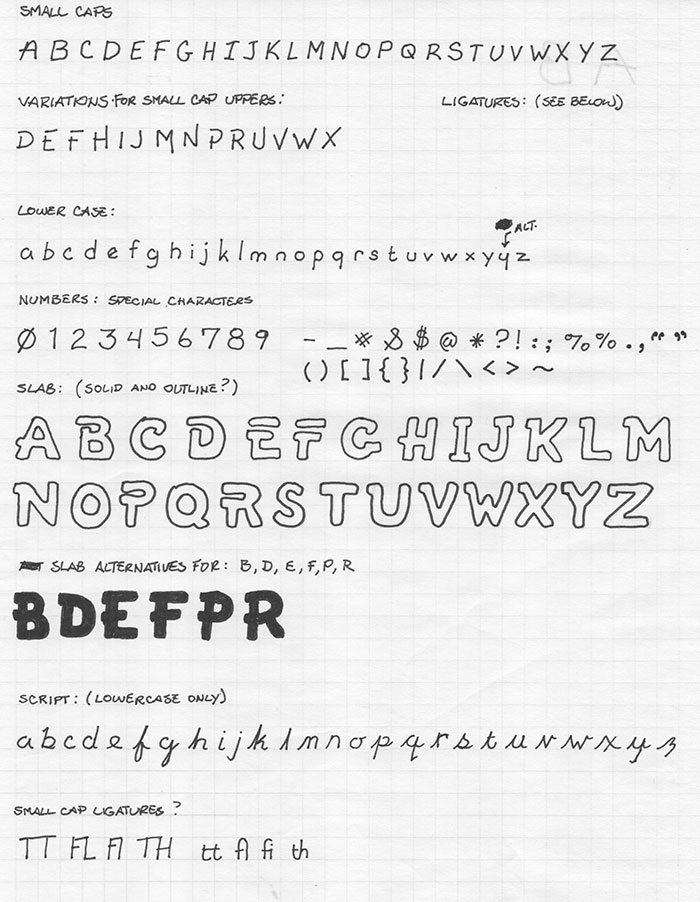 SMALL CAPS
A B C D E F G H I J K L M N O P Q R S T U V W X Y Z
VARIATIONS FOR SMALL CAP UPPERS: LIGATURES: (SEE BELOW)
D E F H I J M N P R U V W X
LOWER CASE:
ALT.
a b c d e f g h i j k l m n o p q r s t u v w x y y z
NUMBERS: SPECIAL CHARACTERS
0 1 2 3 4 5 6 7 8 9 - _ * & $ @ * ? ! : ; % % . , “ ”
( ) [ ] { } | / \ < > ~
SLAB: (SOLID AND OUTLINE?)
A B C D E F G H I J K L M
N O P Q R S T U V W X Y Z
SLAB ALTERNATIVES FOR: B, D, E, F, P, R
B D E F P R
SCRIPT: (LOWERCASE ONLY)
a b c d e f g h i j k l m n o p q r s t u v w x y z
SMALL CAP LIGATURES?
TT FL FI TH tt fl fi th